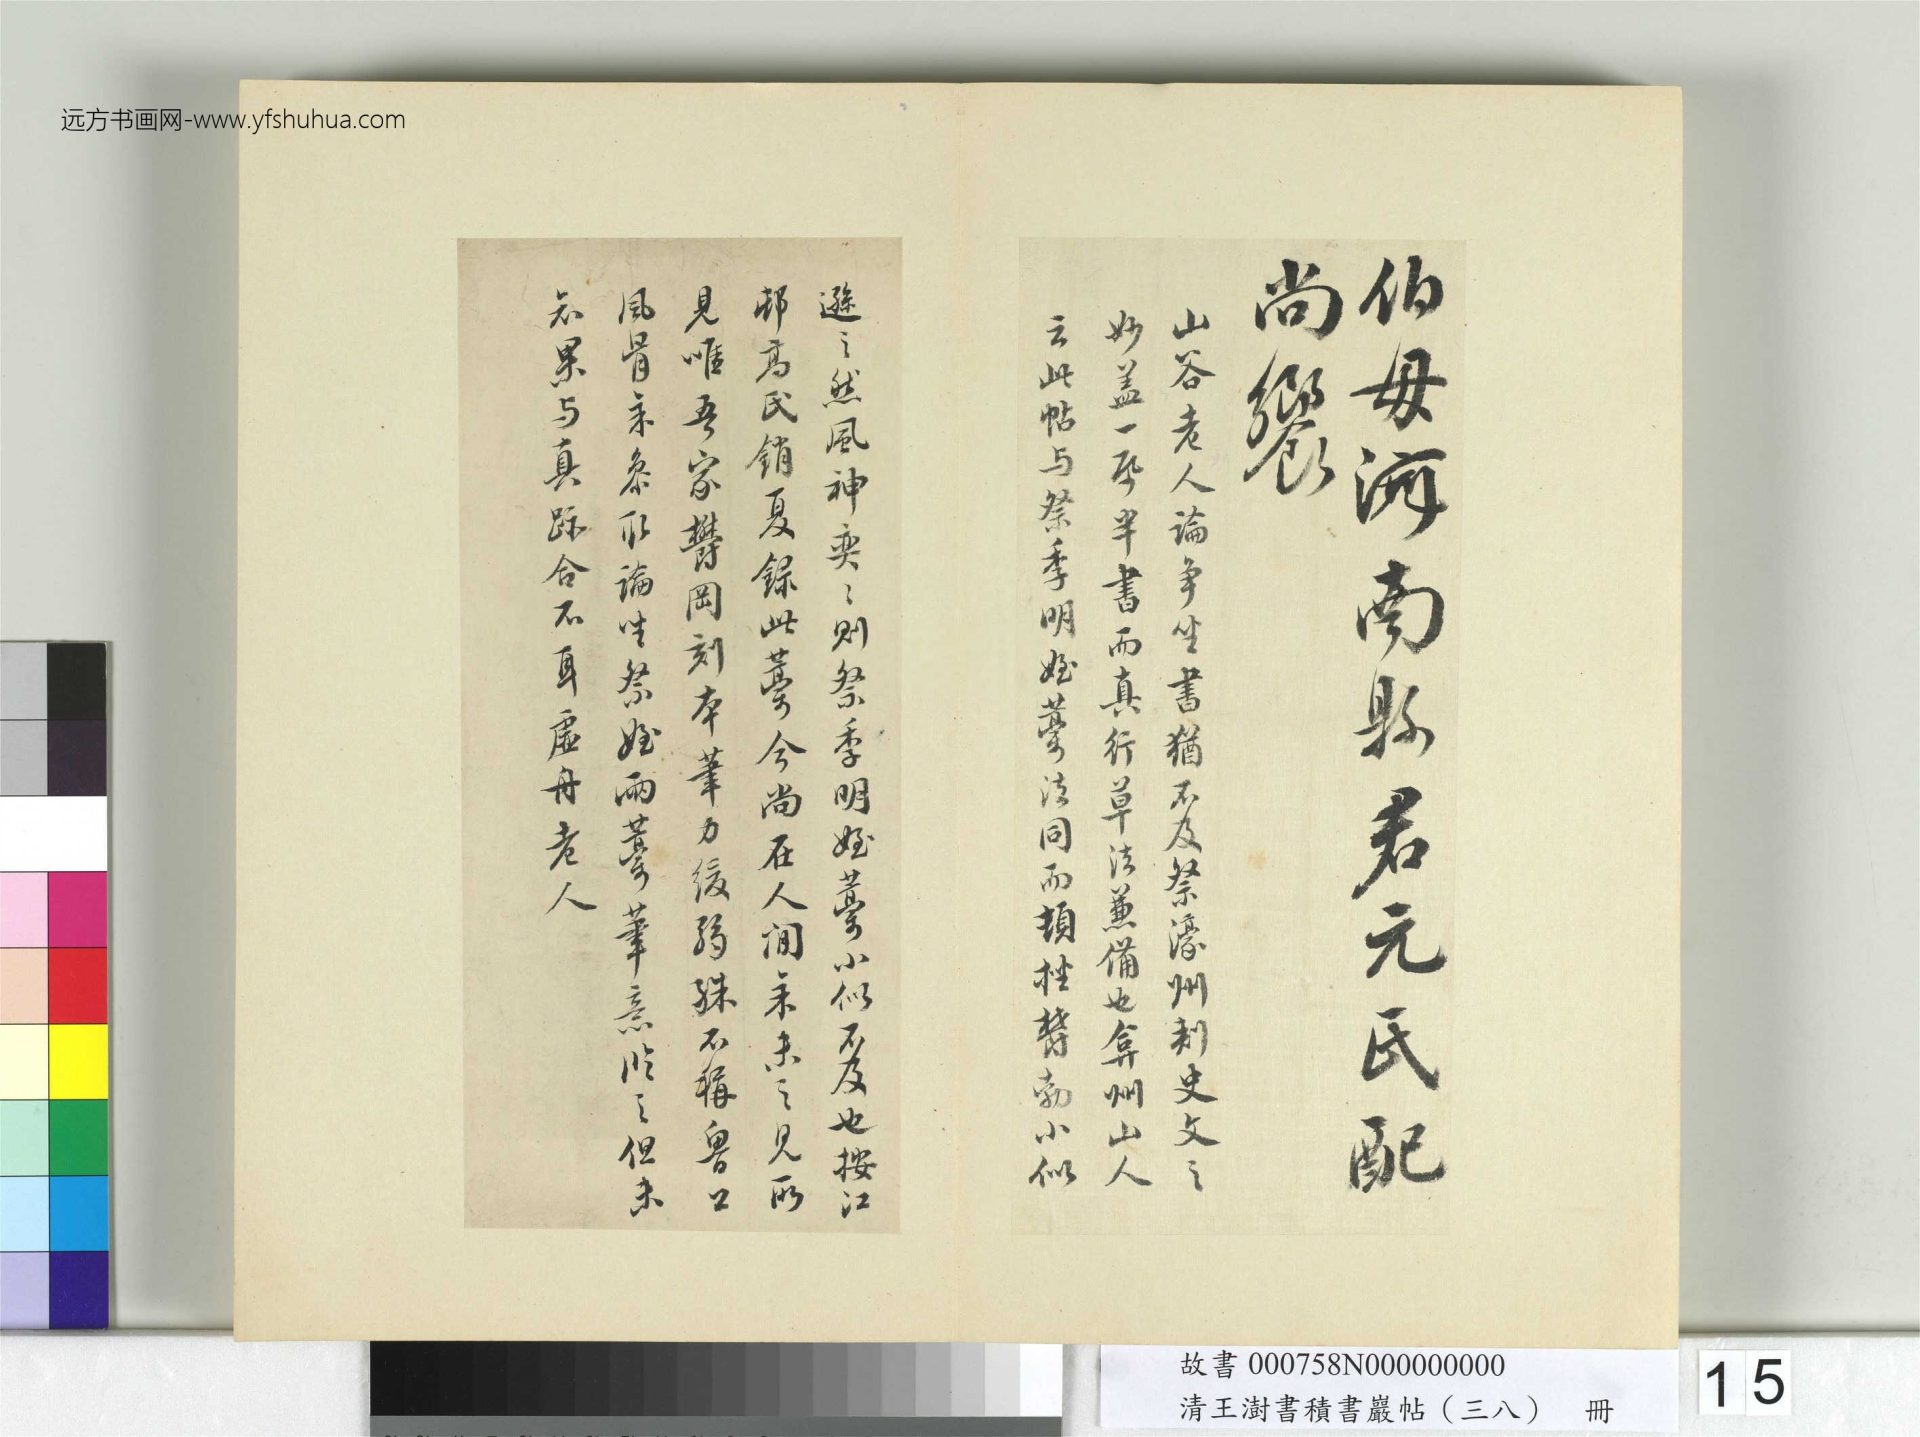 远方书画网-www.yfshuhua.com
伯母河南縣君元氏配
尚饗
山谷老人論争坐書猶不及祭濠州刺史文之
妙盖一帋半書而真行草法兼備也弇州山人
云此帖与祭季明姪藁法同而頓挫鬱勃小似
遜之然風神奕〻則祭季明姪藁小似不及也按江
邨高氏銷夏録此藁今尚在人間余未之見所
見唯吾家鬱岡刻本筆力緩弱殊不稱魯公
風骨余條取論坐祭姪兩藁筆意臨之但未
知果与真跡合不耳虚舟老人
故書 000758N000000000
清王澍書積書巖帖（三八） 冊
15